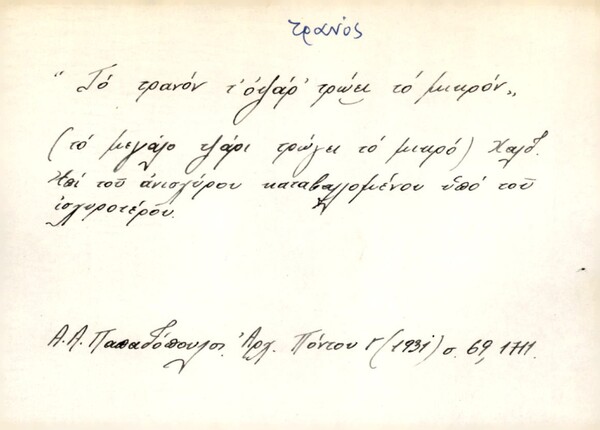 τρανός
"Τό τρανόν τ' ὀψάρ' τρώει τό μικρόν„
(τό μεγάλο ψάρι τρώγει τό μικρό) Χαλδ.
Ἐπί τοῦ ἀνισχύρου καταβαλλομένου ὑπό τοῦ
ἰσχυροτέρου.
Α.Α. Παπαδόπουλος. Ἀρχ. Πόντου Γ (1931) σ. 69, 1711.